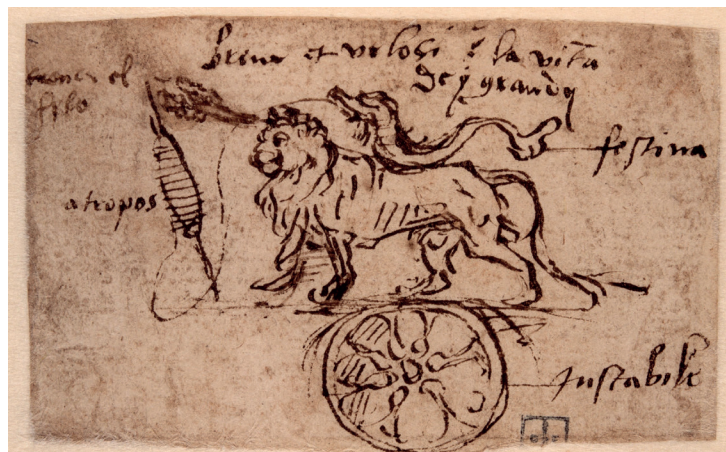 breue et velosi e la vita
de y grandi
el
filo
festina
atropos
instabile